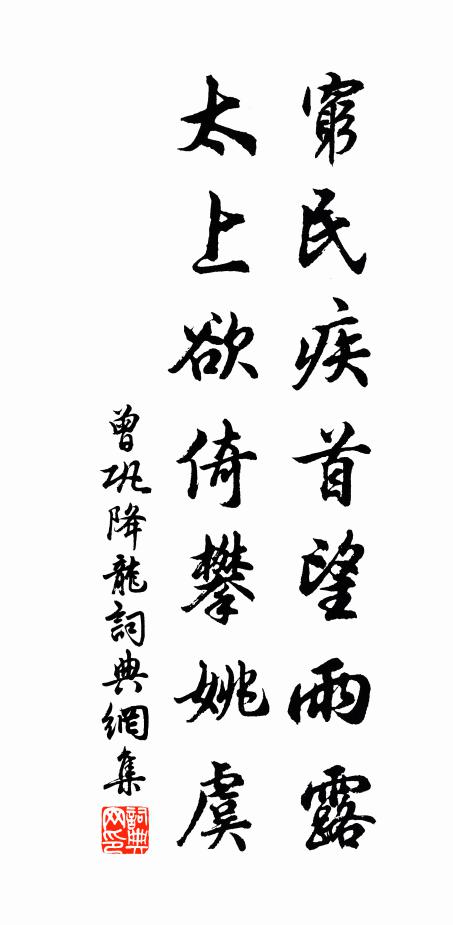 窮民疾首望雨露
太上欲倚攀姚虞
曾巩降龍詞典網集
詞典网印